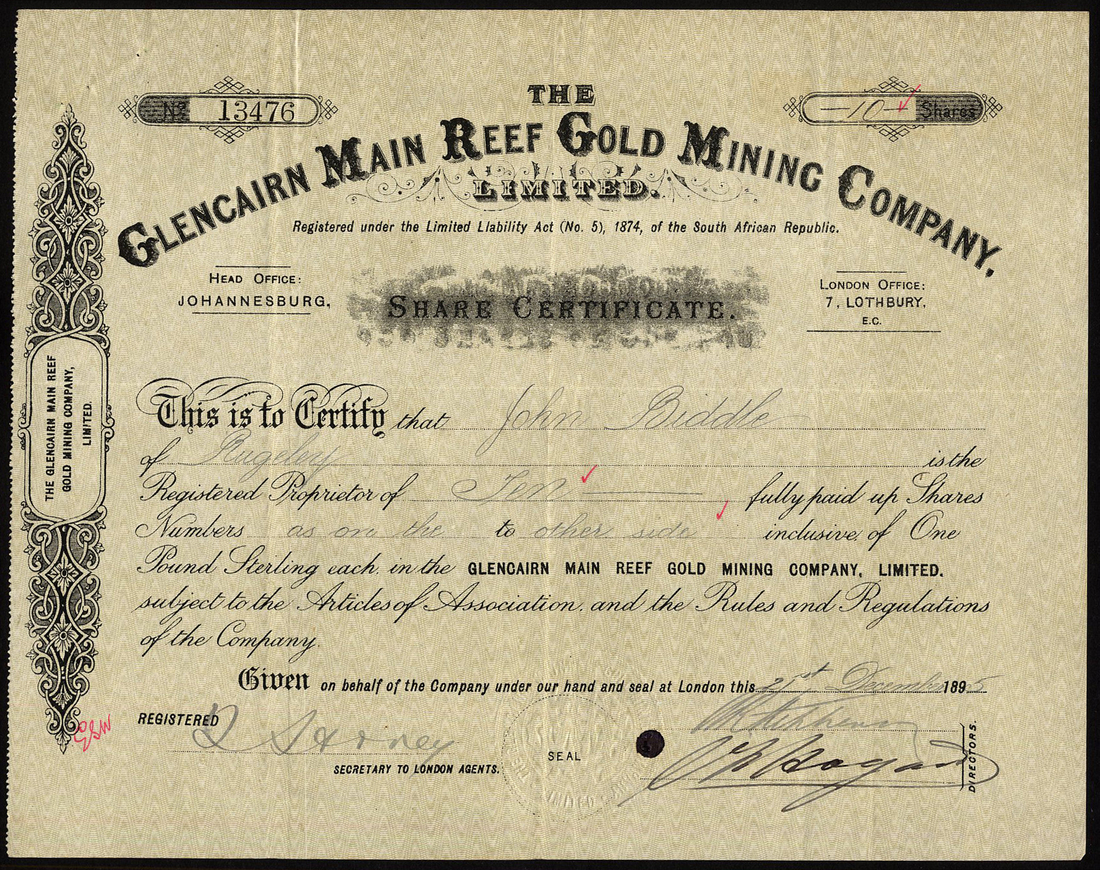 No. 13476
-10- Shares
THE
GLENCAIRN MAIN REEF GOLD MINING COMPANY,
LIMITED.
Registered under the Limited Liability Act (No. 5), 1874, of the South African Republic.
HEAD OFFICE:
JOHANNESBURG.
SHARE CERTIFICATE.
LONDON OFFICE:
7, LOTHBURY,
E.C.
THE GLENCAIRN MAIN REEF
GOLD MINING COMPANY,
LIMITED.
This is to Certify that John Biddle
of Rugeley is the
Registered Proprietor of Ten fully paid up Shares
Numbers as on the to other side inclusive of One
Pound Sterling each in the GLENCAIRN MAIN REEF GOLD MINING COMPANY, LIMITED.
subject to the Articles of Association, and the Rules and Regulations
of the Company.
Given on behalf of the Company under our hand and seal at London this 21st December 1895
REGISTERED
SECRETARY TO LONDON AGENTS.
SEAL
DIRECTORS.